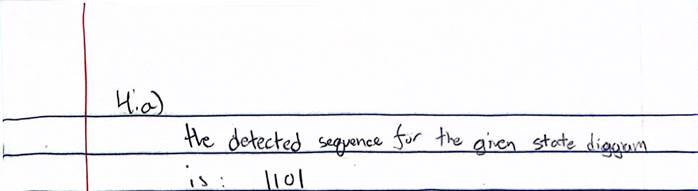 4.a)
the detected sequence for the given state diggram
is: 1101